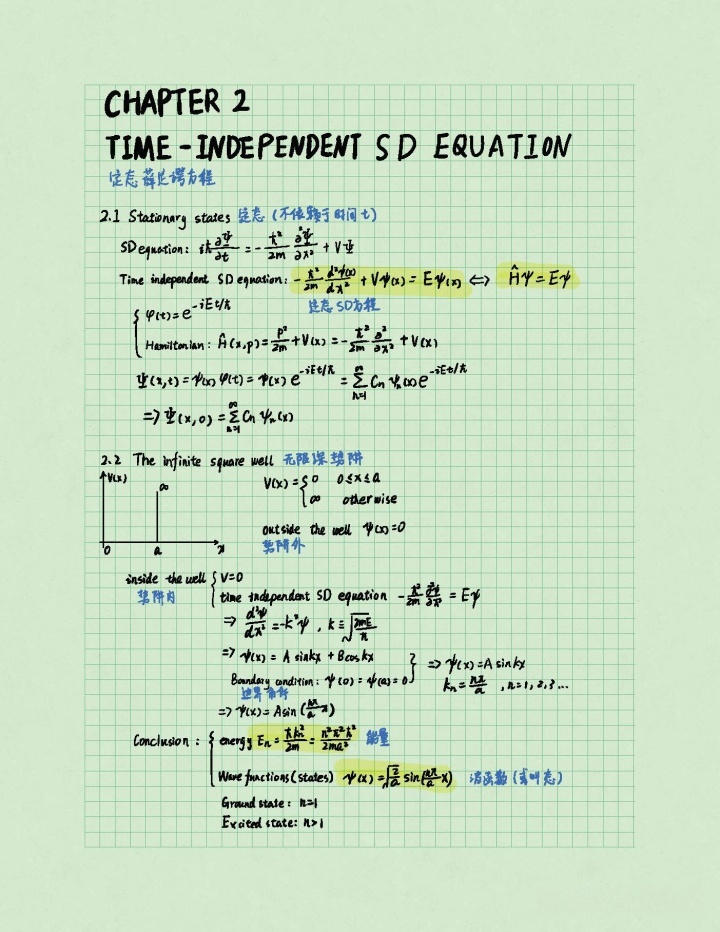 CHAPTER 2
TIME-INDEPENDENT SD EQUATION
定态薛定谔方程
2.1 Stationary states 定态 (不依赖于时间 t)
SD equation: iℏ ∂Ψ/∂t = -ℏ²/2m ∂²Ψ/∂x² + VΨ
Time independent SD equation: -ℏ²/2m d²ψ(x)/dx² + Vψ(x) = Eψ(x) ⇔ Ĥψ = Eψ
定态SD方程
φ(t) = e^{-iEt/ℏ}
Hamiltonian: Ĥ(x,p) = p²/2m + V(x) = -ℏ²/2m ∂²/∂x² + V(x)
Ψ(x,t) = ψ(x) φ(t) = ψ(x) e^{-iEt/ℏ} = ∑_{n=1}^{∞} Cn ψn(x) e^{-iEt/ℏ}
=> Ψ(x,0) = ∑_{n=1}^{∞} Cn ψn(x)
2.2 The infinite square well 无限深势阱
V(x) ∞
V(x) = { 0 0≤x≤a
∞ otherwise
outside the well ψ(x)=0
势阱外
0 a x
inside the well { V=0
势阱内
time independent SD equation -ℏ²/2m ∂²ψ/∂x² = Eψ
=> d²ψ/dx² = -k²ψ , k ≡ √2mE/ℏ
=> ψ(x) = A sinkx + Bcoskx
Boundary condition: ψ(0) = ψ(a) = 0 } => ψ(x) = A sinkx
边界条件
kn = nπ/a , n=1,2,3...
=> ψ(x) = Asin(nπ/a x)
Conclusion: { energy En = ℏkn²/2m = n²π²ℏ²/2ma² 能量
Wave functions(states) ψ(x) = √2/a sin(nπ/a x) 波函数 (或叫态)
Ground state: n=1
Excited state: n>1